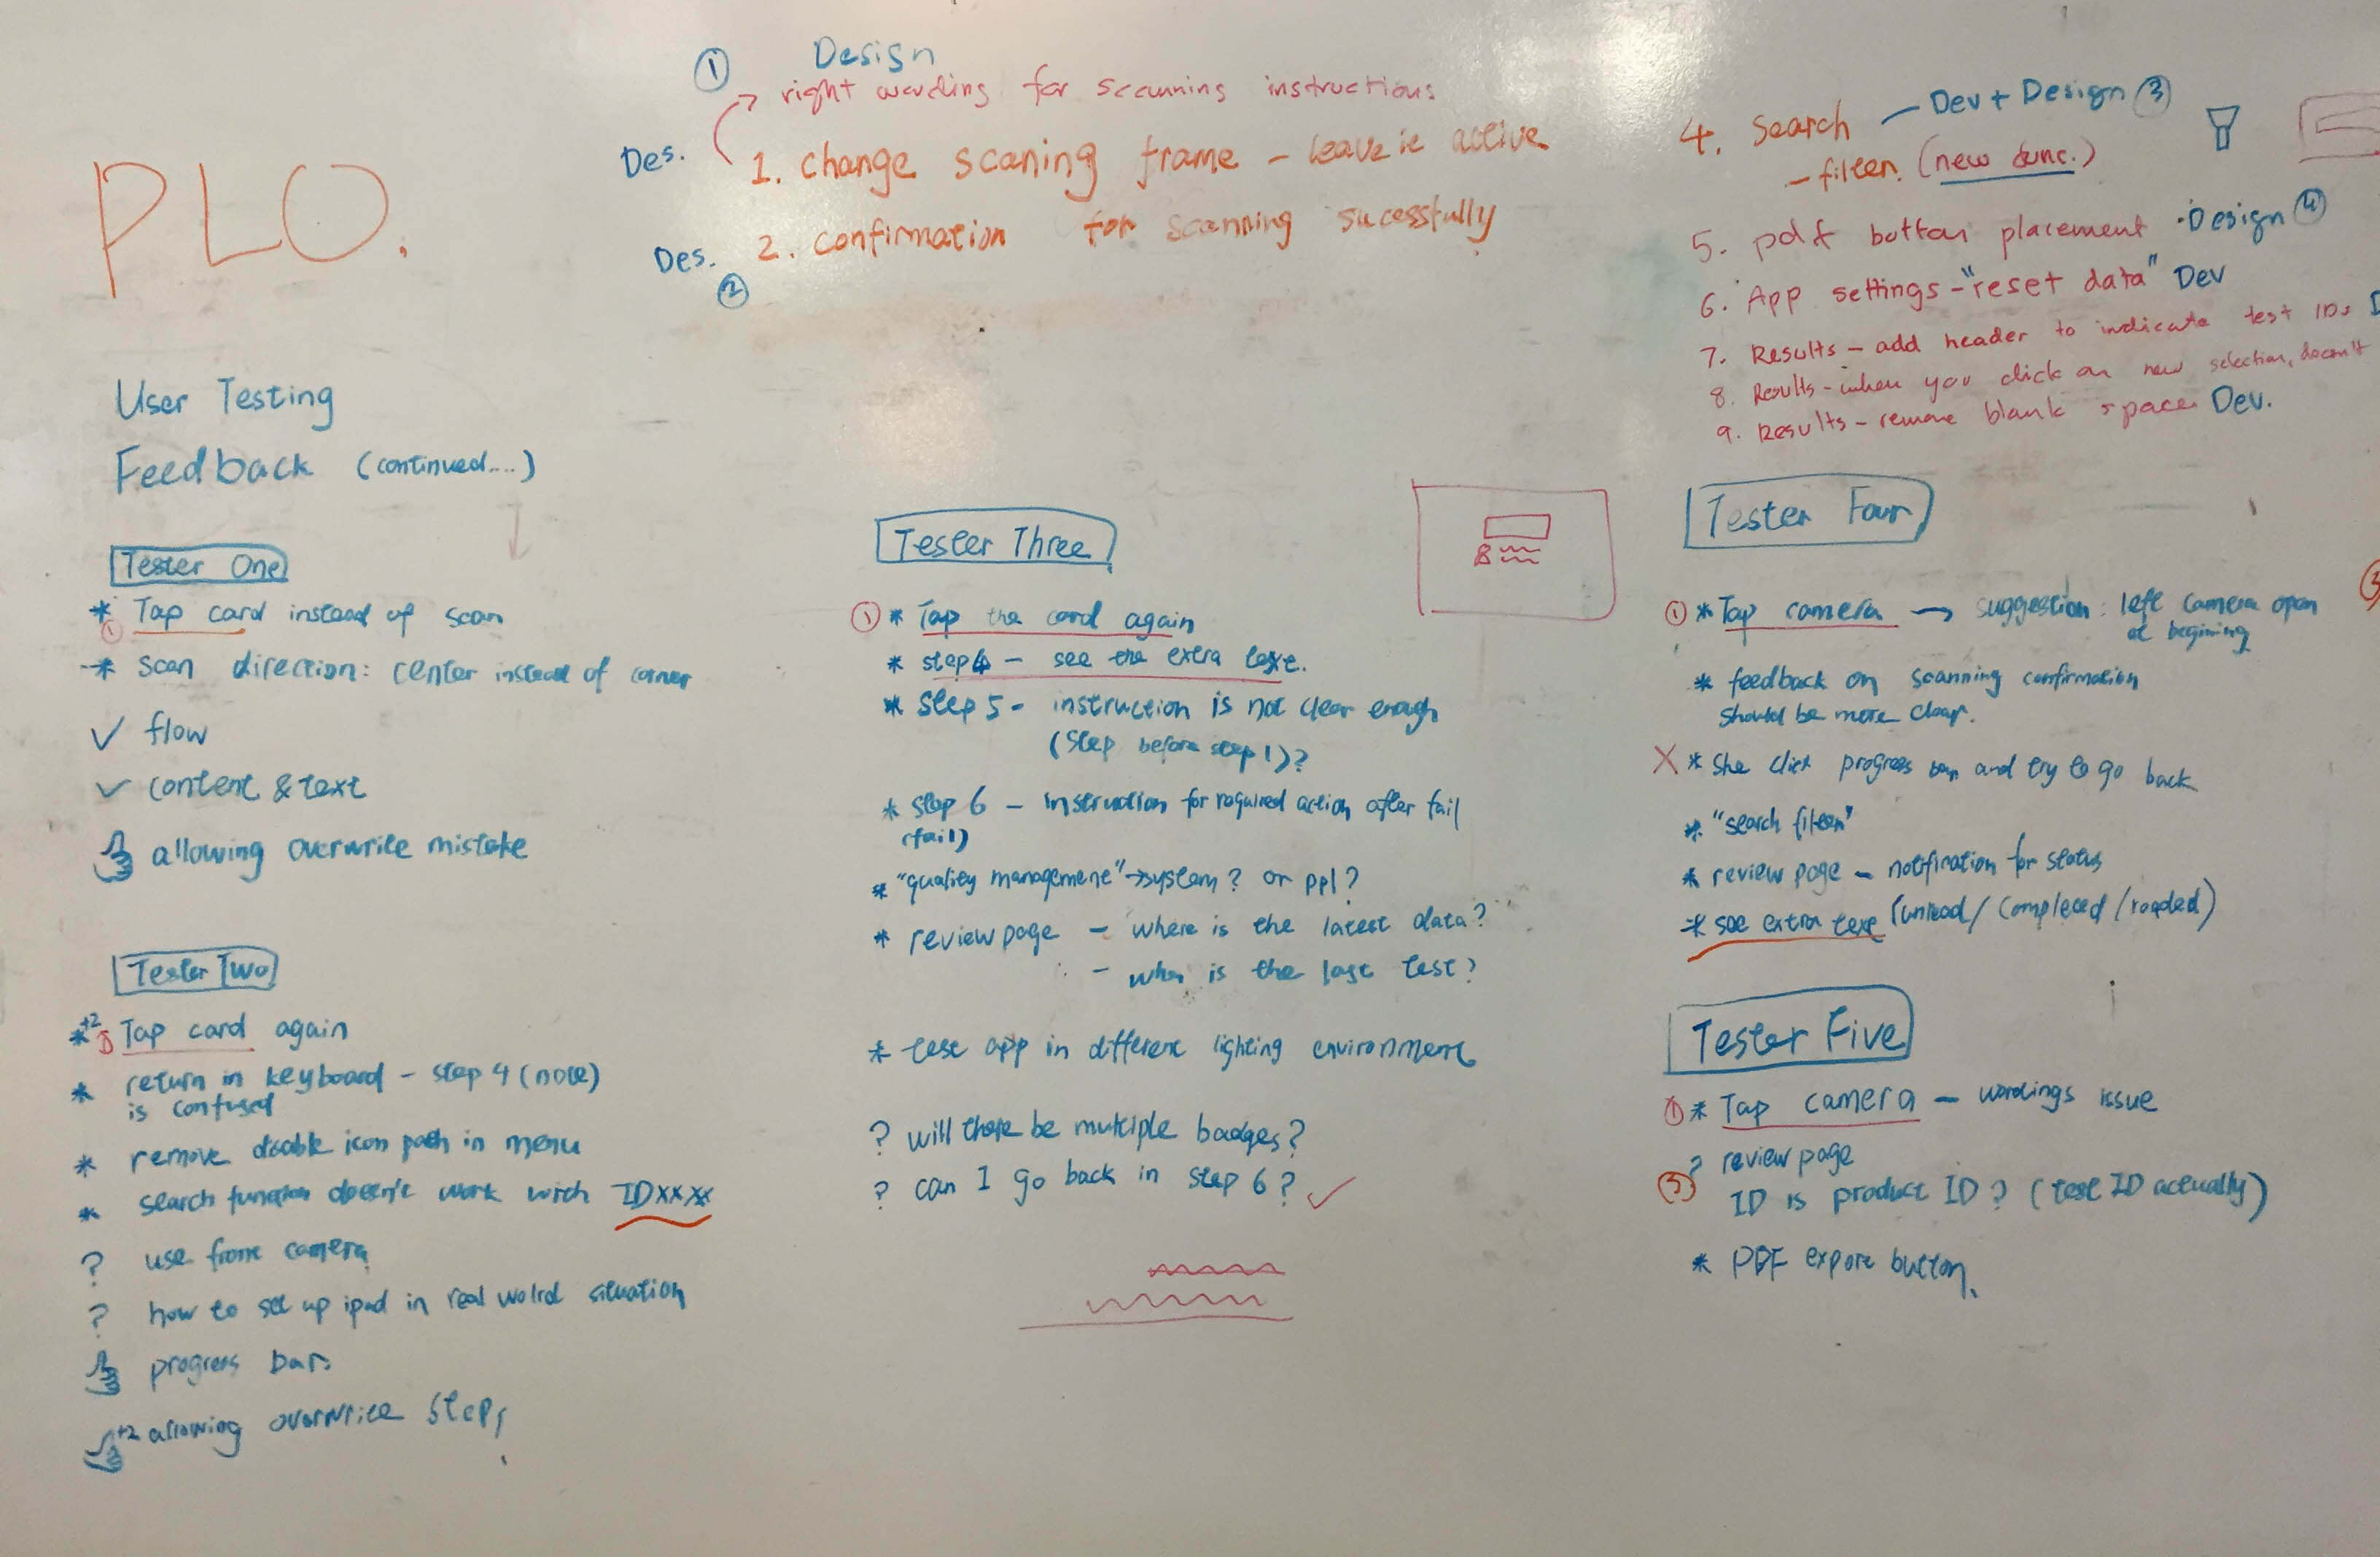 PLO.
① Design
right wording for scanning instructions
Des. 1. change scaning frame - leave it active
Des. 2. confirmation for scanning sucessfully
②
4. Search - Dev + Design ③
- filter. (new func.)
5. pdf button placement · Design ④
6. App settings - "reset data" Dev
7. Results - add header to indicate test IDs
8. Results - when you click on new selection, doesn't
9. Results - remove blank space Dev.
User Testing
Feedback (continued....)
Tester One
* Tap card instead of scan
①
* scan direction: center instead of corner
✓ flow
✓ content & text
allowing overwrite mistake
Tester Two
*+2 ① Tap card again
* return in keyboard - step 4 (note)
is confused
* remove double icon path in menu
* search function doesn't work with IDxxxx
? use front camera
? how to set up ipad in real wolrd situation
progress bar.
+2 allowing overwrite step,
Tester Three
① * Tap the card again
* step 4 - see the extra text.
* step 5 - instruction is not clear enough
(step before step 1)?
* step 6 - instruction for required action after fail
(fail)
* "quality management" → system? or ppl?
* review page - where is the latest data?
- when is the last test?
* test app in different lighting environment
? will there be multiple badges?
? can I go back in step 6? ✓
8
Tester Four
① * Tap camera → suggestion: left camera open
at begining
* feedback on scanning confirmation
should be more clear.
X * she click progress bar and try to go back
* "search filter"
* review page - notification for status
* see extra text (unread / completed / readed)
Tester Five
① * Tap camera - wordings issue
? review page
⑤ ID is product ID? (test ID actually)
* PDF export button.